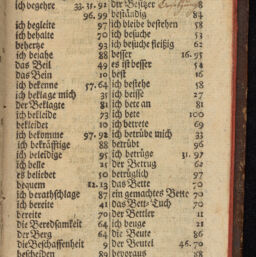 ich begehre 33. 31. 92
96. 99
ich begleite 97
ich behalte 70
beherze 93
ich bejahe 88
das Beil 49
das Bein 10
ich bekenne 57. 64
ich beklage mich 31
der Beklagte 81
ich bekleide 73
bekleidet 10
ich bekomme 97. 92
ich bekräfftige 88
ich beleidige 95
ich belle 21
es beliebet 50
bequem 12. 13
ich berathschlage 87
ich bereite 41
bereite 70
die Beredsamkeit 64
der Berg 64
die Beschaffenheit 9
bescheiden 89
der Besitzer 8
beständig 84
ich bleibe bestehen 58
ich besuche 53
ich besuche fleißig 62
besser 16. 95
es ist besser 54
best 16
ich bestehe 58
ich beisse 27
ich bete an 81
ich bete 100
ich betrete 69
ich betrübe mich 33
betrübt 96
ich betrüge 31. 92
der Betrug 62
betrüglich 97
das Bette 70
ein gemachtes Bette 70
das Bett-Tuch 70
der Bettler 11
ich beuge 21
die Beute 86
der Beutel 46. 70
bevoraus 88